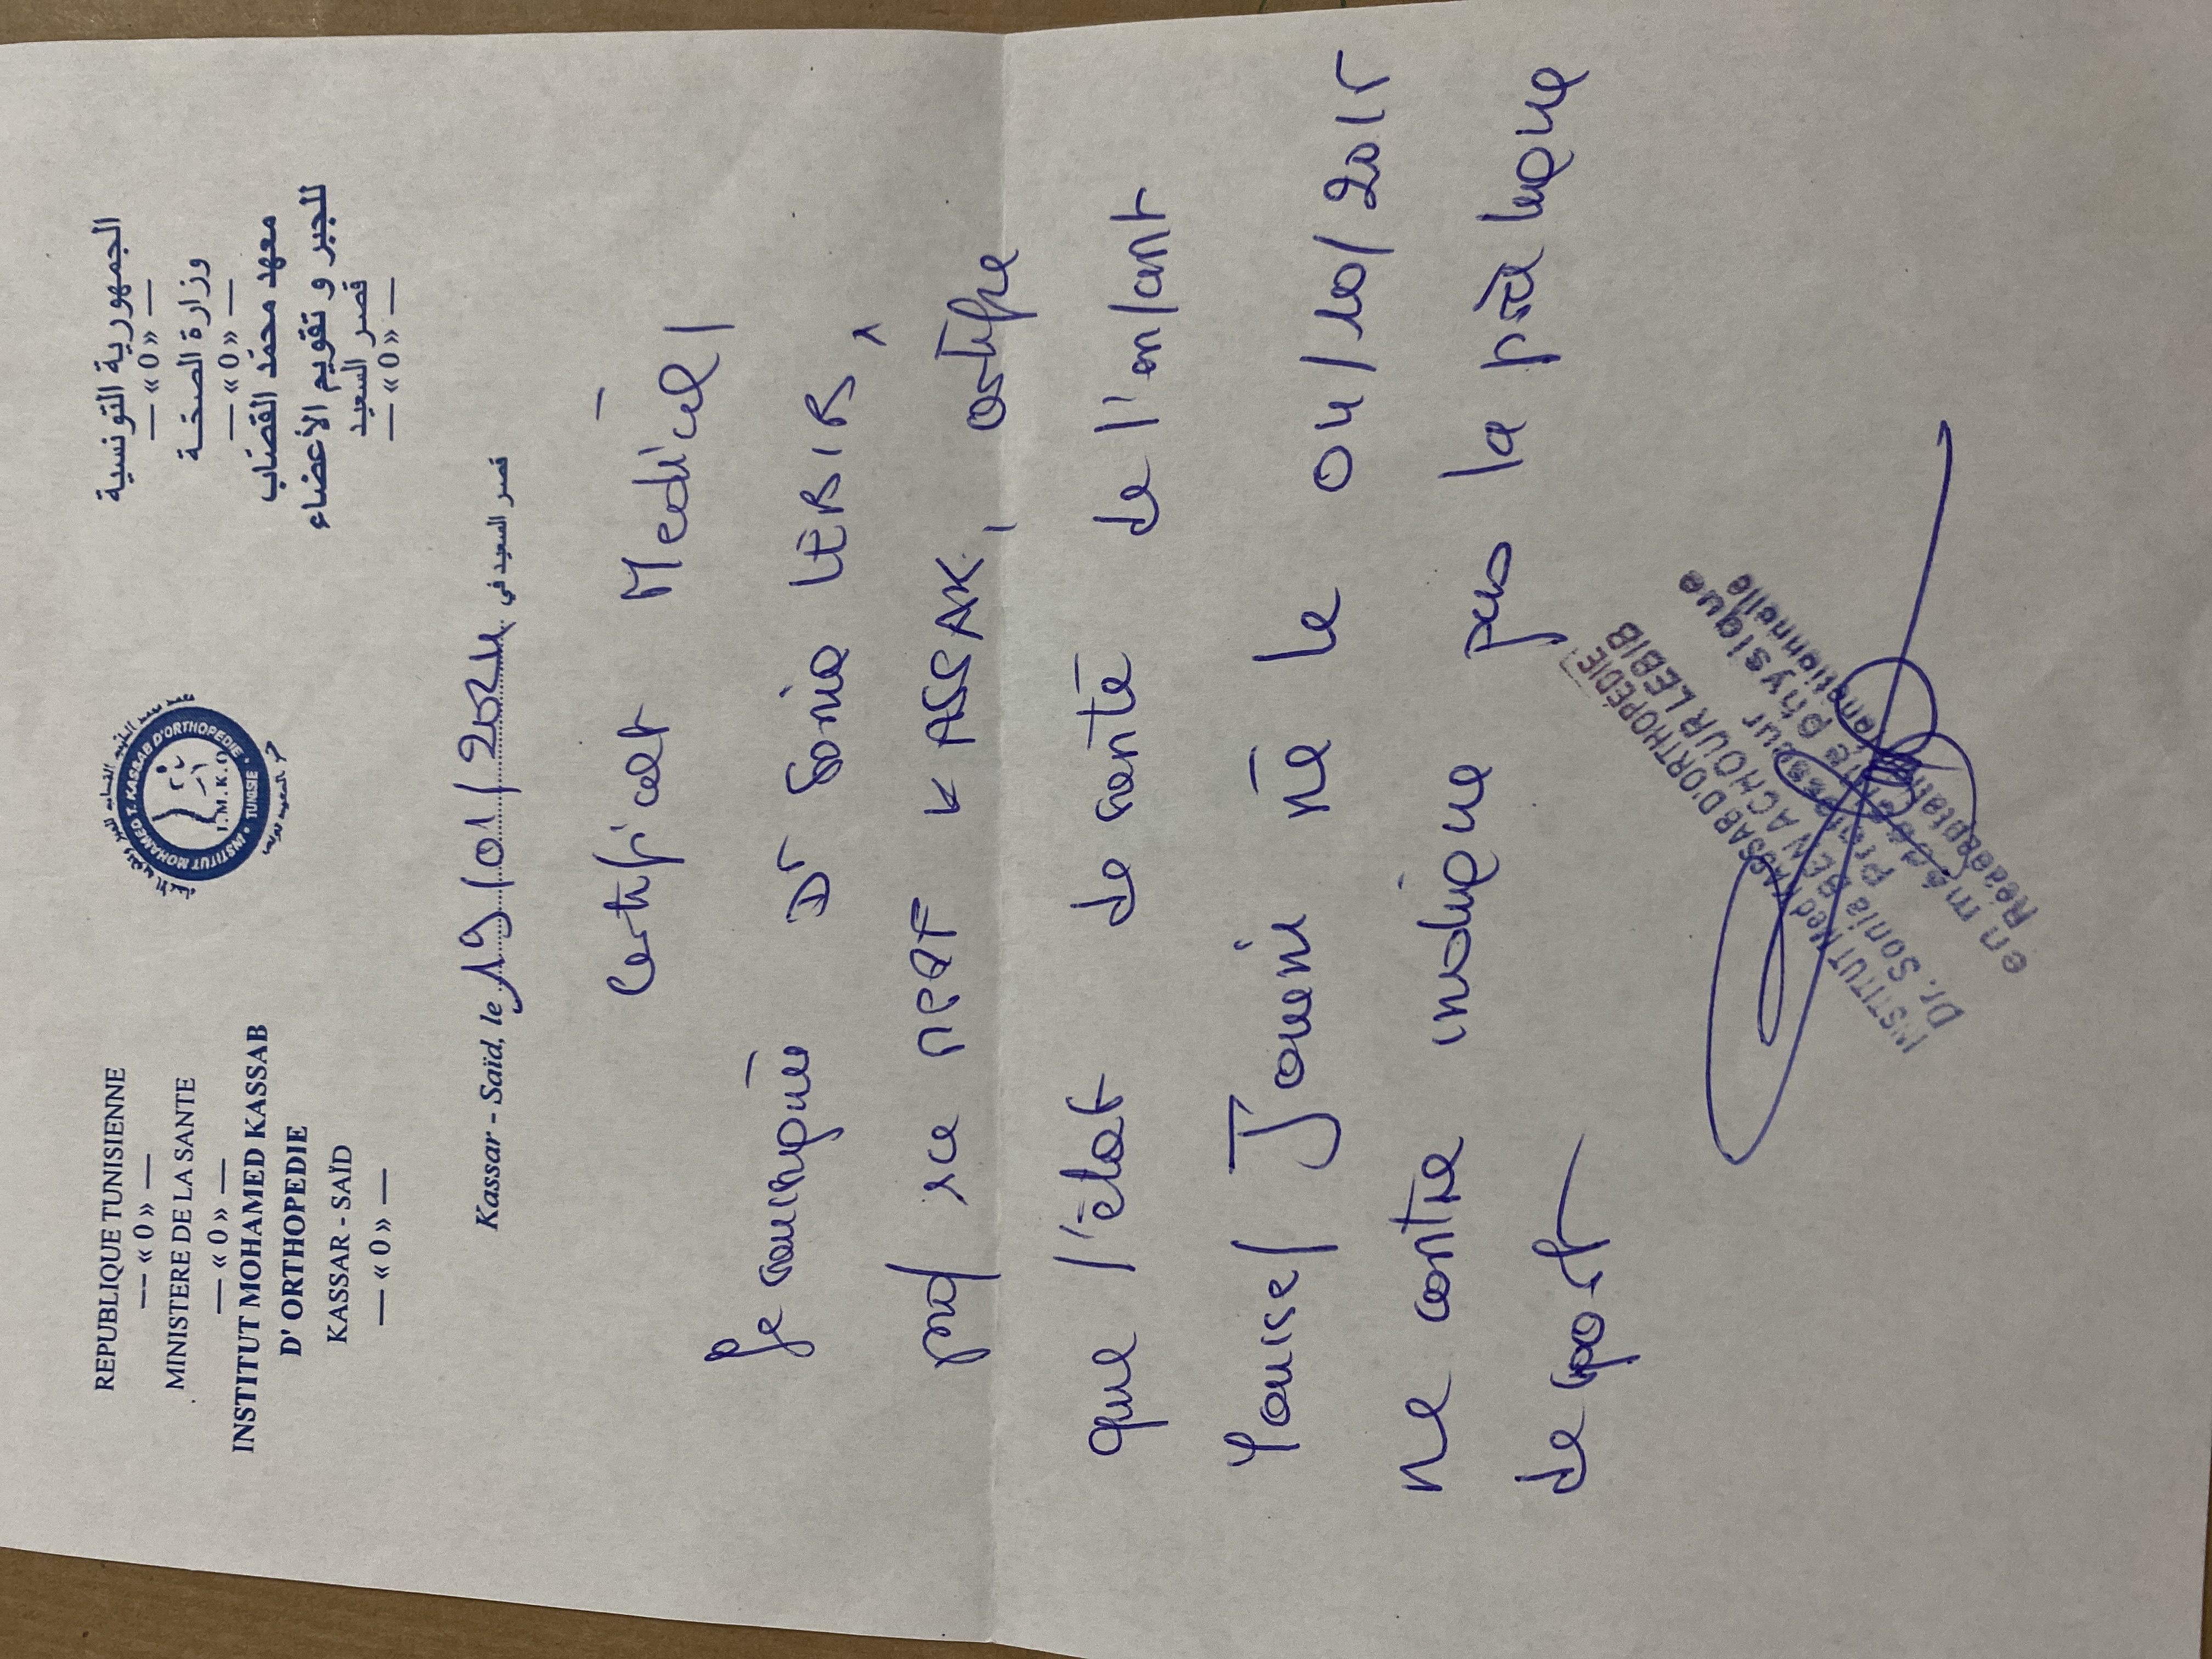 REPUBLIQUE TUNISIENNE
— « 0 » —
MINISTERE DE LA SANTE
— « 0 » —
INSTITUT MOHAMED KASSAB
D' ORTHOPEDIE
KASSAR - SAÏD
— « 0 » —
INSTITUT MOHAMED T. KASSAB D'ORTHOPEDIE
TUNISIE
I.M.K.O
الجمهورية التونسية
— « 0 » —
وزارة الصحّـة
— « 0 » —
معهد محمّد القصّاب
للجبر و تقويم الأعضاء
قصر السعيد
— « 0 » —
Kassar - Saïd, le 19/01/2024 قصر السعيد في
Certificat Medical
Je soussignée Dr Sonia LEBIB,
prof sce MPRF KASSAB, certifie
que l'état de santé de l'enfant
Youssef Jouini né le 04/10/2015
ne contre indique pas la pratique
de sport
INSTITUT Med KASSAB D'ORTHOPEDIE
Dr. Sonia BEN ACHOUR LEBIB
Professeur
en médecine physique
Réadaptation fonctionnelle